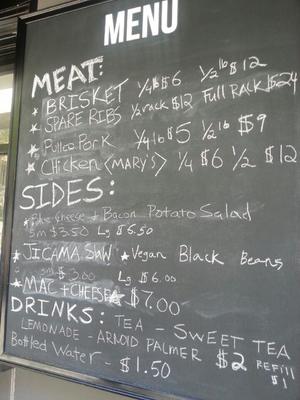 MENU
MEAT:
★ BRISKET 1/4 lb $6 1/2 lb $12
★ SPARE RIBS 1/2 rack $12 Full RACK $24
★ Pulled Pork 1/4 lb $5 1/2 lb $9
★ Chicken (MARY'S) 1/4 $6 1/2 $12
SIDES:
★ Blue cheese + Bacon Potato Salad
sm $3.50 Lg $6.50
★ JICAMA Slaw ★ Vegan Black Beans
sm $3.00 Lg $6.00
★ MAC + CHEESE ★ $7.00
DRINKS: TEA - SWEET TEA
LEMONADE - ARNOLD PALMER $2 REFILL $1
Bottled Water - $1.50